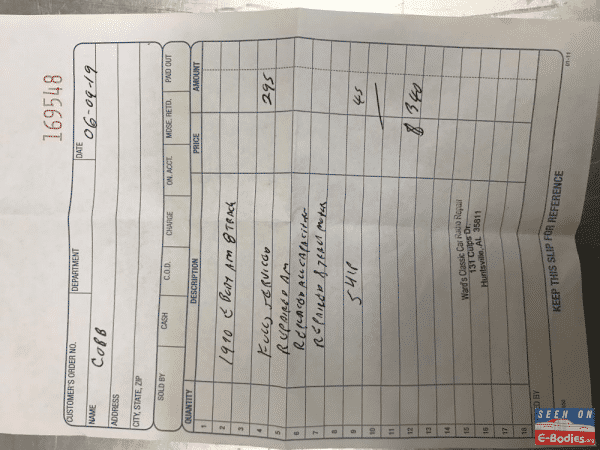 169548
CUSTOMER'S ORDER NO. DEPARTMENT DATE 06-09-19
NAME COBB
ADDRESS
CITY, STATE, ZIP
SOLD BY CASH C.O.D. CHARGE ON. ACCT. MDSE. RETD. PAID OUT
QUANTITY DESCRIPTION PRICE AMOUNT
1
2 1970 E BODY AM 8 TRACK
3
4 FULLY SERVICED 295
5 REPAIRED AM
6 REPLACED ALL CAPACITORS
7 REPAIRED 8 TRACK MOTOR
8
9 SHIP 45
10
11
12 $ 340
13
14
15 Ward's Classic Car Radio Repair
16 131 Cups Dr
17 Huntsville, AL 35811
18
KEEP THIS SLIP FOR REFERENCE
01-11
SEEN ON
E-Bodies.org